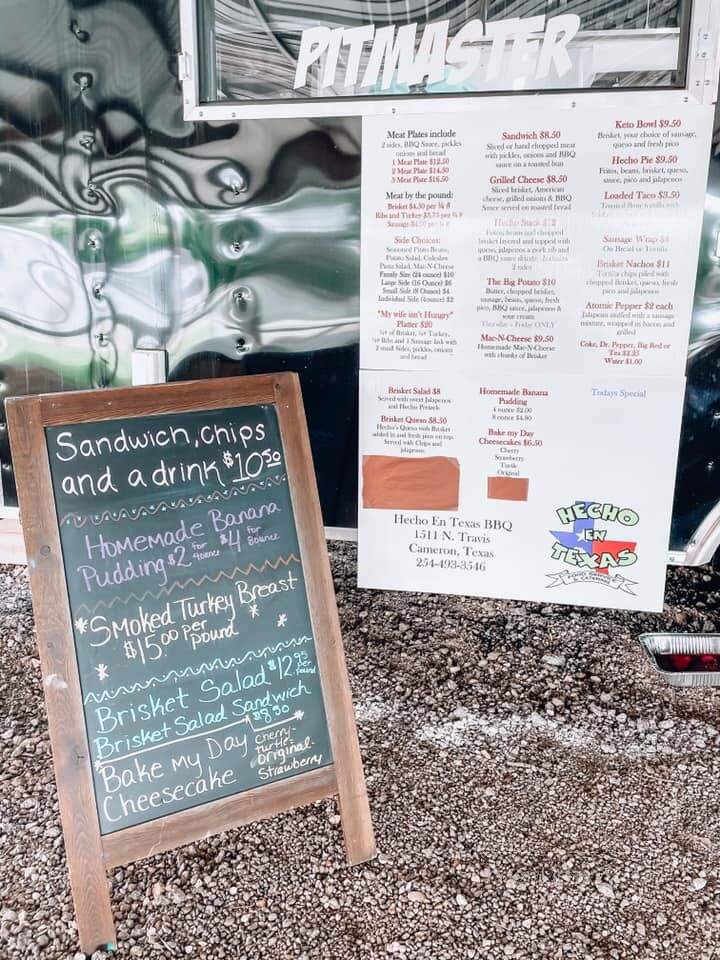 PITMASTER
Meat Plates include
2 sides, BBQ Sauce, pickles
onions and bread
1 Meat Plate $12.50
2 Meat Plate $14.50
3 Meat Plate $16.50
Meat by the pound:
Brisket $4.50 per ¼ #
Ribs and Turkey $3.75 per ¼ #
Sausage per ¼ #
Side Choices:
Seasoned Pinto Beans,
Potato Salad, Coleslaw
Pasta Salad, Mac-N-Cheese
Family Size (24 ounce) $10
Large Side (16 Ounce) $6
Small Side (8 Ounce) $4
Individual Side (4ounce) $2
"My wife isn't Hungry"
Platter $20
of Brisket, Turkey,
Ribs and 1 Sausage link with
2 small Sides, pickles, onions
and bread
Sandwich $8.50
Sliced or hand chopped meat
with pickles, onions and BBQ
sauce on a toasted bun
Grilled Cheese $8.50
Sliced brisket, American
cheese, grilled onions & BBQ
Sauce served on toasted bread
Hecho Stack $12
Fritos, beans and chopped
brisket layered and topped with
queso, jalapenos a pork rib and
a BBQ sauce drizzle. Includes
2 sides
The Big Potato $10
Butter, chopped brisket,
sausage, beans, queso, fresh
pico, BBQ sauce, jalapenos &
sour cream
Thursday - Friday ONLY
Mac-N-Cheese $9.50
Homemade Mac-N-Cheese
with chunks of Brisket
Keto Bowl $9.50
Brisket, your choice of sausage,
queso and fresh pico
Hecho Pie $9.50
Fritos, beans, brisket, queso,
sauce, pico and jalapenos
Loaded Taco $3.50
Toasted flour tortilla with
Sausage Wrap $4
On Bread or Tortilla
Brisket Nachos $11
Tortilla chips piled with
chopped Brisket, queso, fresh
pico and jalapenos
Atomic Pepper $2 each
Jalapeno stuffed with a sausage
mixture, wrapped in bacon and
grilled
Coke, Dr. Pepper, Big Red or
Tea $2.25
Water $1.00
Brisket Salad $8
Served with sweet Jalapenos
and Hecho Pretzels
Brisket Queso $8.50
Hecho's Queso with Brisket
added in and fresh pico on top.
Served with Chips and
jalapenos
Homemade Banana
Pudding
4 ounce $2.00
8 ounce $4.00
Bake my Day
Cheesecakes $6.50
Cherry
Strawberry
Turtle
Original
Todays Special
Hecho En Texas BBQ
1511 N. Travis
Cameron, Texas
254-493-3546
HECHO
EN
TEXAS
& CATERING
Sandwich, chips
and a drink $10.50
Homemade Banana
Pudding $2 for 4ounce $4 for 8ounce
*Smoked Turkey Breast
$15.00 per pound
Brisket Salad $12.95 per pound
Brisket Salad Sandwich
$8.50
Bake my Day
Cheesecake
cherry-
turtle-
original-
Strawberry